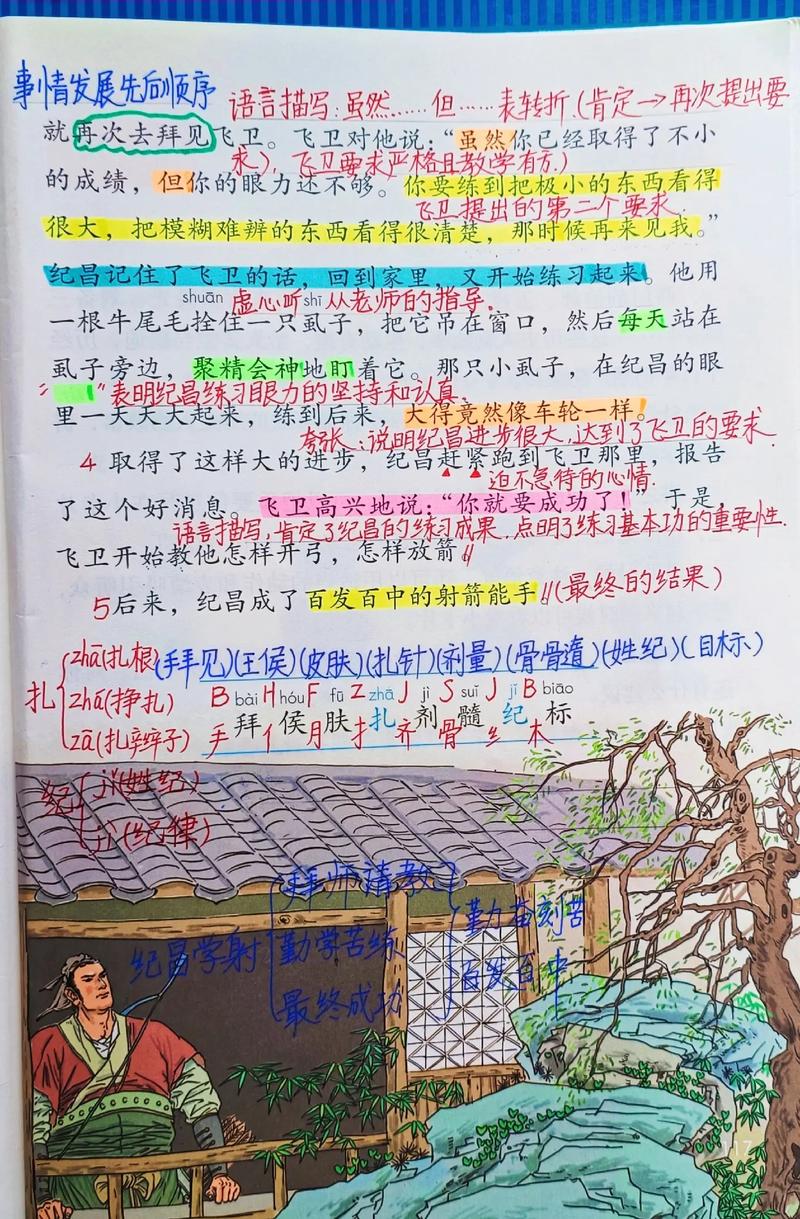 事情发展先后顺序
语言描写:虽然……但……表转折.(肯定→再次提出要
就再次去拜见飞卫。飞卫对他说:“虽然你已经取得了不小
求), 飞卫要求严格且教学有方.)
的成绩,但你的眼力还不够。你要练到把极小的东西看得
飞卫提出的第二个要求.
很大,把模糊难辨的东西看得很清楚,那时候再来见我。”
纪昌记住了飞卫的话,回到家里,又开始练习起来。他用
shuān 虚心听 shī 从老师的指导.
一根牛尾毛拴住一只虱子,把它吊在窗口,然后每天站在
虱子旁边,聚精会神地盯着它。那只小虱子,在纪昌的眼
“ ”表明纪昌练习眼力的坚持和认真.
里一天天大起来,练到后来,大得竟然像车轮一样。
夸张:说明纪昌进步很大,达到了飞卫的要求.
4 取得了这样大的进步,纪昌赶紧跑到飞卫那里,报告
迫不急待的心情.
了这个好消息。飞卫高兴地说:“你就要成功了!”于是,
语言描写,肯定了纪昌的练习成果,点明了练习基本功的重要性.
飞卫开始教他怎样开弓,怎样放箭。//
5后来,纪昌成了百发百中的射箭能手。//(最终的结果)
扎 zhā(扎根)(拜见)(王侯)(皮肤)(扎针)(剂量)(骨髓)(姓纪)(目标)
zhá(挣扎) B bài H hóu F fū Z zhā J jì S suǐ J jǐ B biāo
拜 侯 肤 扎 剂 髓 纪 标
zā(扎辫子) 手 亻 月 扌 齐 骨 纟 木
纪 jǐ(姓纪)
jì(纪律)
拜师请教
纪昌学射 勤学苦练 勤奋刻苦
百发百中
最终成功
17